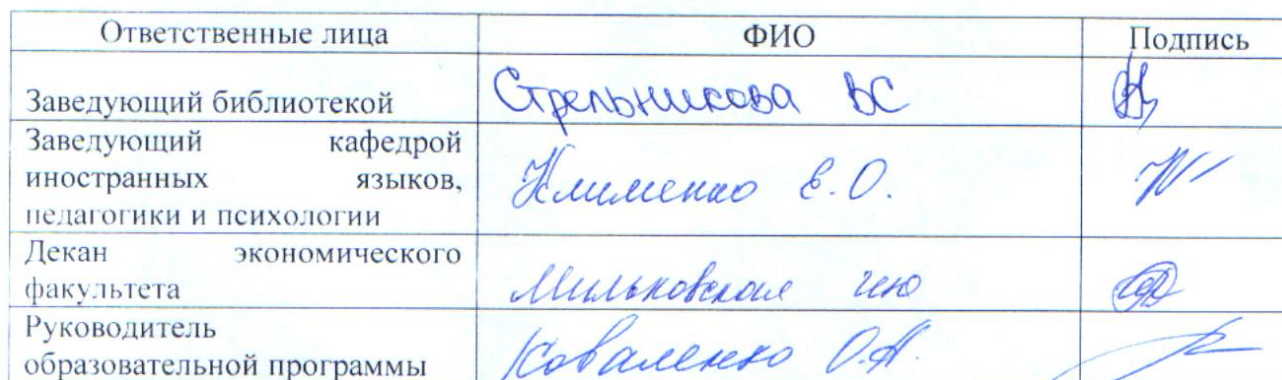 Ответственные лица ФИО Подпись
Заведующий библиотекой Стрельникова ВС
Заведующий кафедрой
иностранных языков, Клименко Е.О.
педагогики и психологии
Декан экономического
факультета Мильковская
Руководитель
образовательной программы Коваленко О.А.